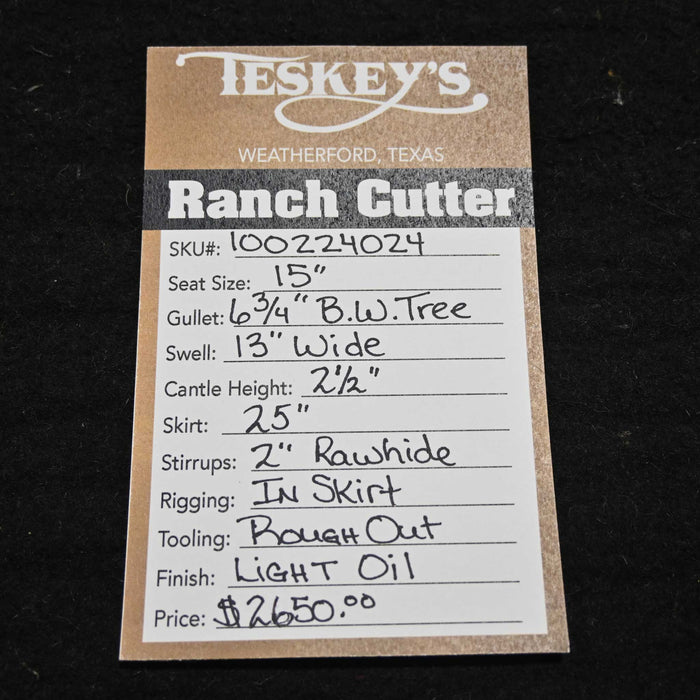 TESKEY'S
WEATHERFORD, TEXAS
Ranch Cutter
SKU#: 100224024
Seat Size: 15"
Gullet: 6 3/4" B.W. Tree
Swell: 13" Wide
Cantle Height: 2 1/2"
Skirt: 25"
Stirrups: 2" Rawhide
Rigging: IN SKirt
Tooling: Rough Out
Finish: LIGHT Oil
Price: $2650.00